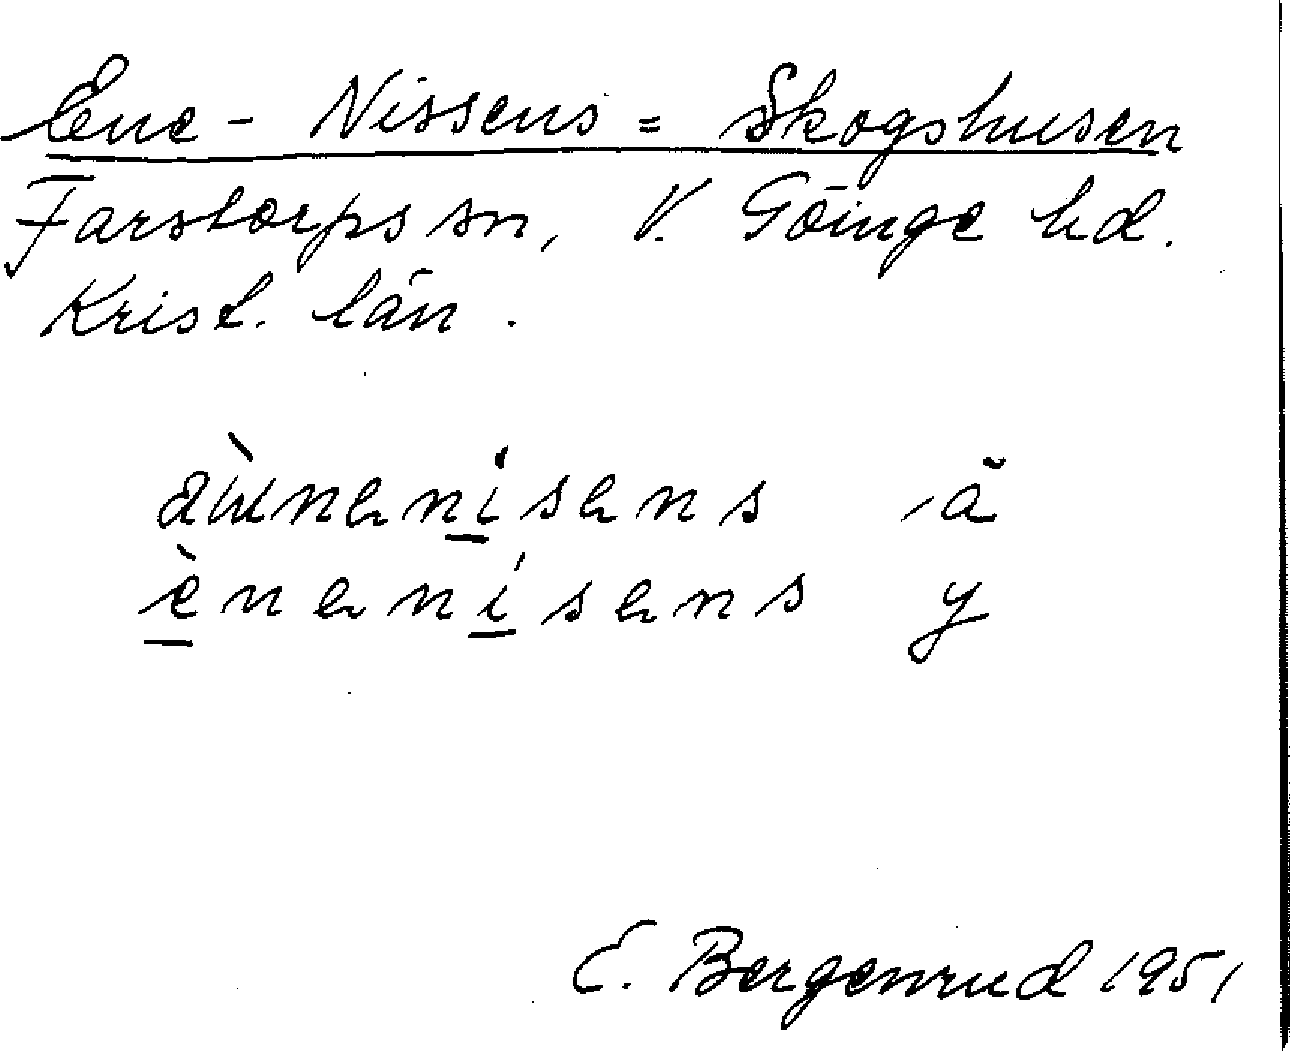 Ene - Nissens = Skogshusen
Farstorps sn, V. Göinge hd.
Krist. län.
ä
ènenisens y
E. Bergenrud 1951